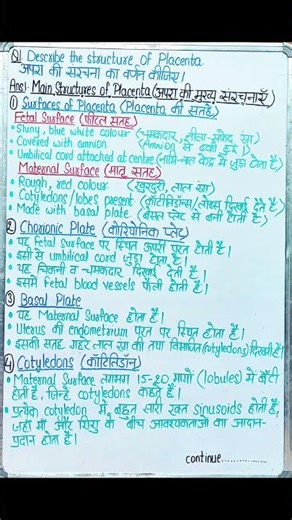 Q1 Describe the structure of Placenta.
अपरा की सरंचना का वर्णन कीजिए।
Ans:- Main Structures of Placenta (अपरा की मुख्य सरंचनाएँ)
① Surfaces of Placenta (Placenta की सतहें)
Fetal Surface (फीटल सतह)
• Shiny, blue white colour (चमकदार, नीला-सफेद रंग)
• Covered with amnion (Amnion से ढकी हुई)
• Umbilical cord attached at centre (नाभि-नाल केंद्र में जुड़ा होता है)
Maternal Surface (मातृ सतह)
• Rough, red colour (खुरदुरी, लाल रंग)
• Cotyledons/lobes present (कोटिलिडॉन्स/लोब्स दिखाई देते हैं)
• Made with basal plate. (बेसल प्लेट से बनी होती है)
② Chorionic Plate (कोरियोनिक प्लेट)
• यह Fetal Surface पर स्थित ऊपरी परत होती है।
• इसी से umbilical cord जुड़ा होता है।
• यह चिकनी व चमकदार दिखाई देती है।
• इसमें Fetal blood vessels फैली होती हैं।
③ Basal Plate
• यह Maternal Surface होता है।
• Uterus की endometrium परत पर स्थित होता है।
• इसकी सतह गहरे लाल रंग की तथा विभाजित (cotyledons) दिखती है।
④ Cotyledons (कॉटिलिडॉन)
• Maternal Surface लगभग 15-20 भागों (lobules) में बँटी
होती है, जिन्हें cotyledons कहते हैं।
• प्रत्येक cotyledon में बहुत सारी रक्त sinusoids होती हैं,
जहाँ माँ और शिशु के बीच आवश्यकताओं का आदान-
प्रदान होता है।
continue..............